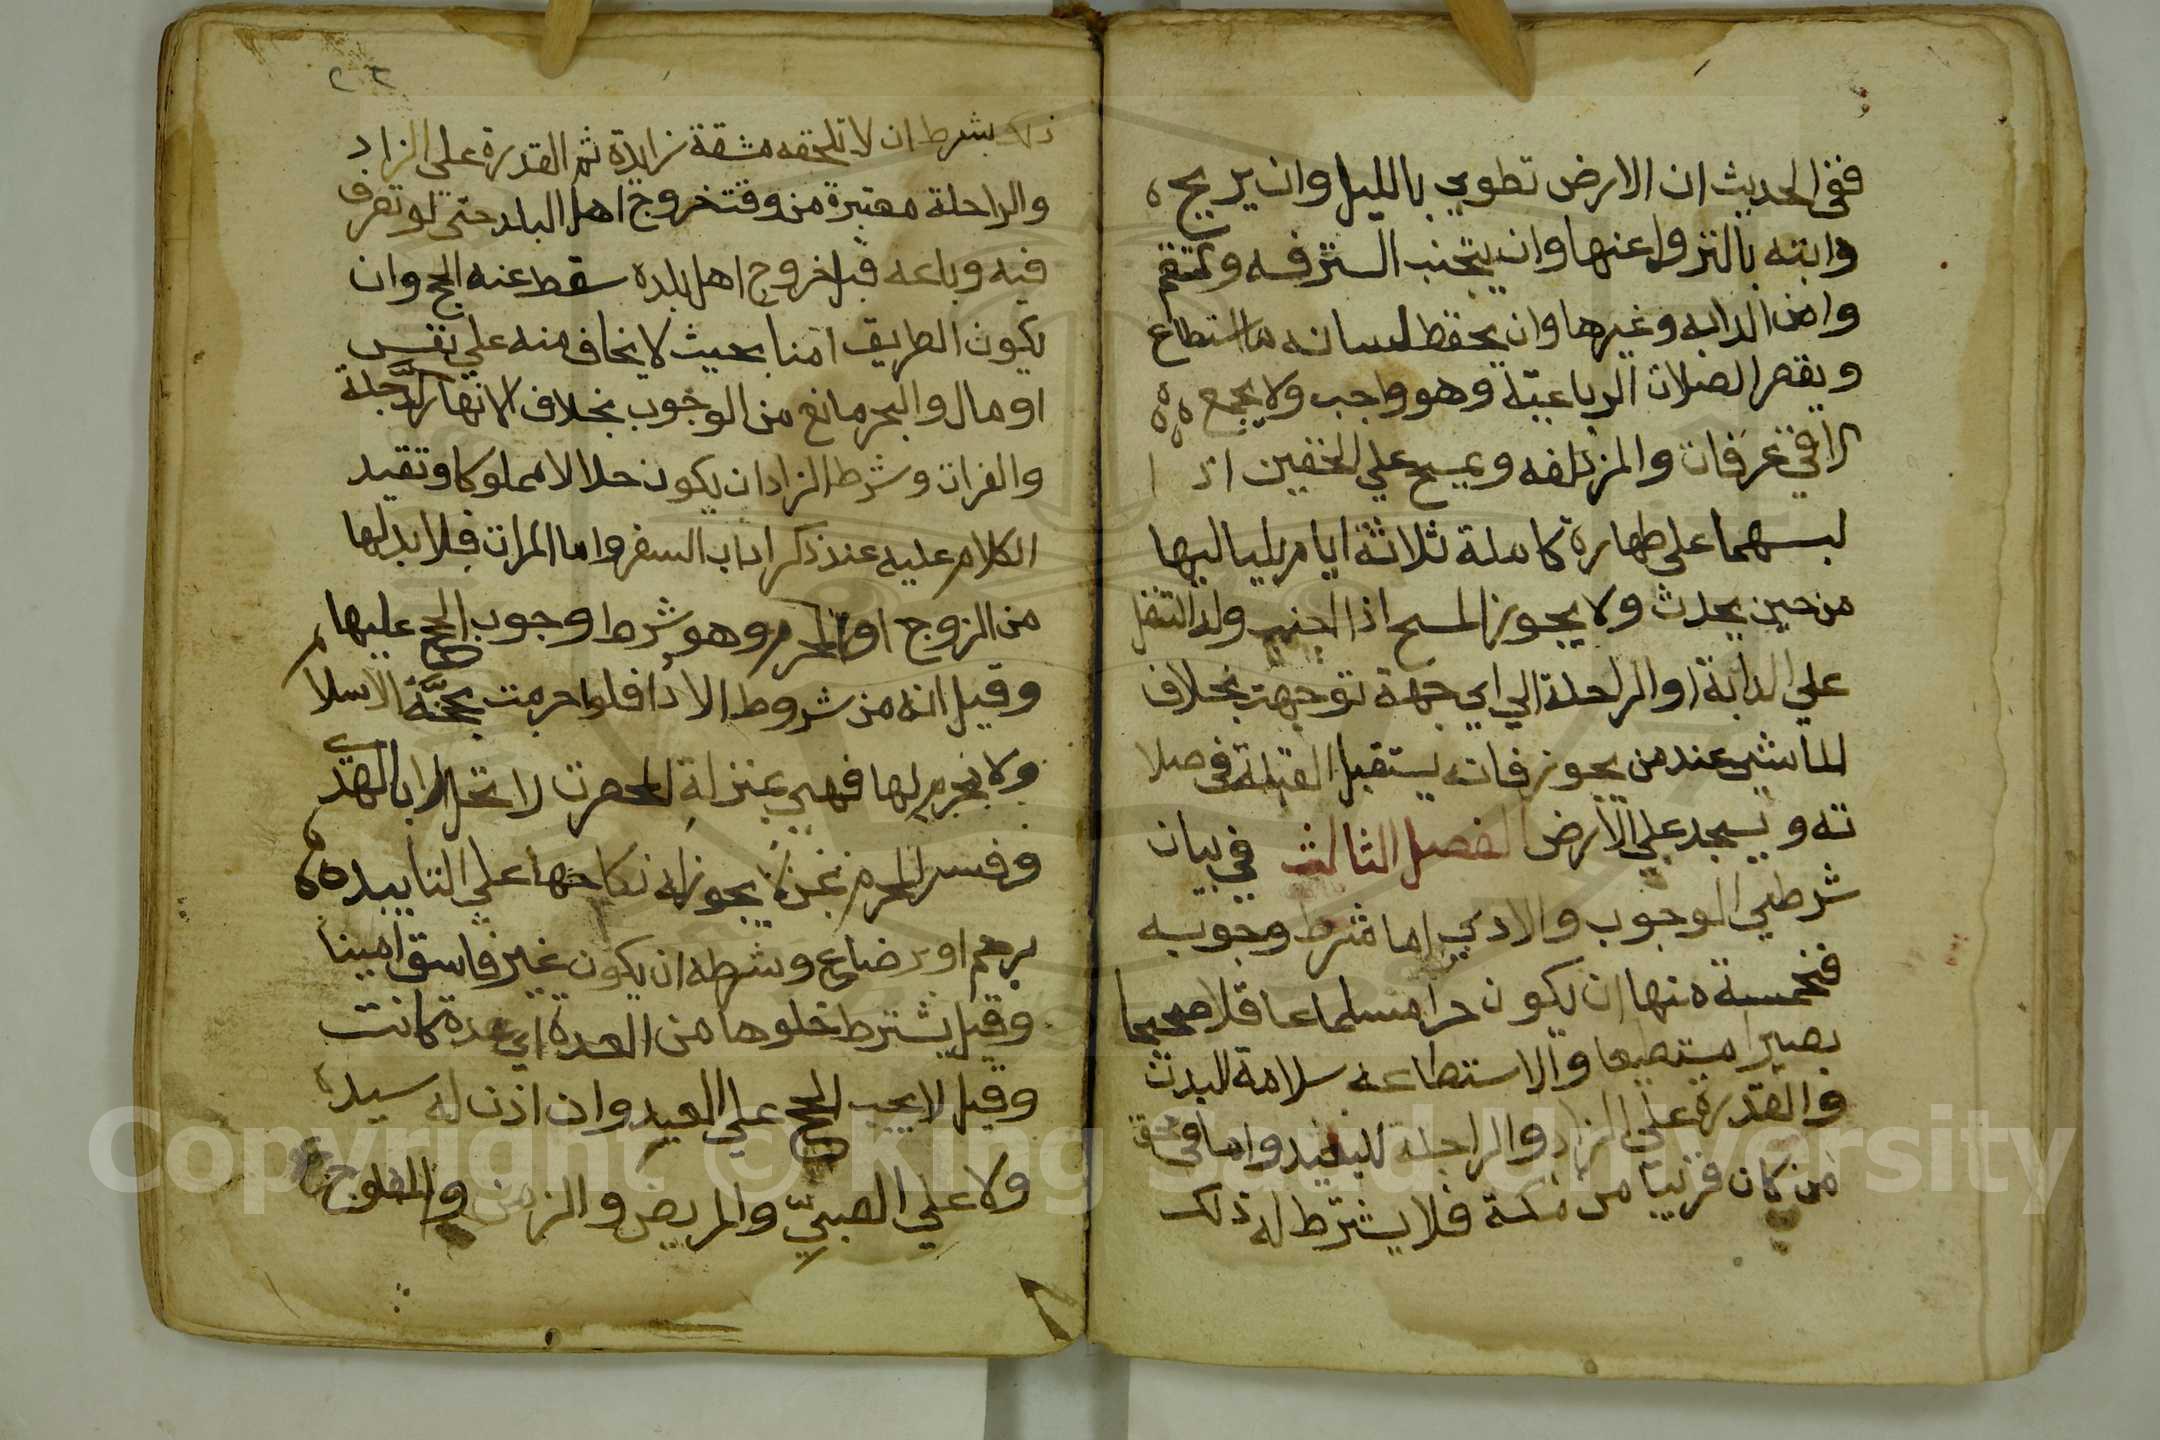 ففي الحديث ان الارض تطوي بالليل وان يريح
دابته بالنزول عنها وان يتجنب الترفه و
وامن الدابه وغيرها وان يحفظ لسانه ما استطاع
ويقصر الصلاة الرباعية وهو واجب ولا يجمع
الا في عرفات والمزدلفه ويمسح علي الخفين اذا
لبسهما على طهارة كاملة ثلاثة ايام بلياليها
من حين يحدث ولا يجوز المسح اذا اجنب وله التنفل
علي الدابة او الراحلة الي اي جهة توجهت بخلاف
الماشي عند من يجوز فانه يستقبل القبلة في صلا
ته ويسجد علي الارض الفصل الثالث في بيان
شرطي الوجوب والادي اما شرط وجوبه
فخمسة منها ان يكون حرا مسلما عاقلا صحيحا
بصيرا مستطيعا والاستطاعه سلامة البدن
والقدرة على الزاد والراحلة للبعيد واما في حق
من كان قريبا من مكة فلا يشترط له ذلك
٢٠٢
ذلك بشرط ان لا تلحقه مشقة زايدة ثم القدرة على الزاد
والراحلة معتبرة من وقت خروج اهل البلد حتى لو تصرف
فيه وباعه قبل خروج اهل بلده سقط عنه الحج وان
يكون الطريق امنا بحيث لا يخاف منه علي نفس
او مال والبحر مانع من الوجوب بخلاف الانهار كالدجلة
والفرات وشرط الزاد ان يكون حلالا مملوكا وتقيد
الكلام عليه عند ذكر اداب السفر واما المراة فلا بد لها
من الزوج او المحرم وهو شرط وجوب الحج عليها
وقيل انه من شروط الادا فلو احرمت بحجة الاسلام
ولا محرم لها فهي بمنزلة المحصرة لا تحل الا بالهدي
وفسر المحرم بمن لا يجوز له نكاحها علي التابيد
برحم او برضاع وشرطه ان يكون غير فاسق امينا
وقيل يشترط خلوها من العدة اي عدة كانت
وقيل لا يجب الحج علي العبد وان اذن له سيده
ولا علي الصبي والمريض والزمن والمفلوج
Copyright © King Saud University